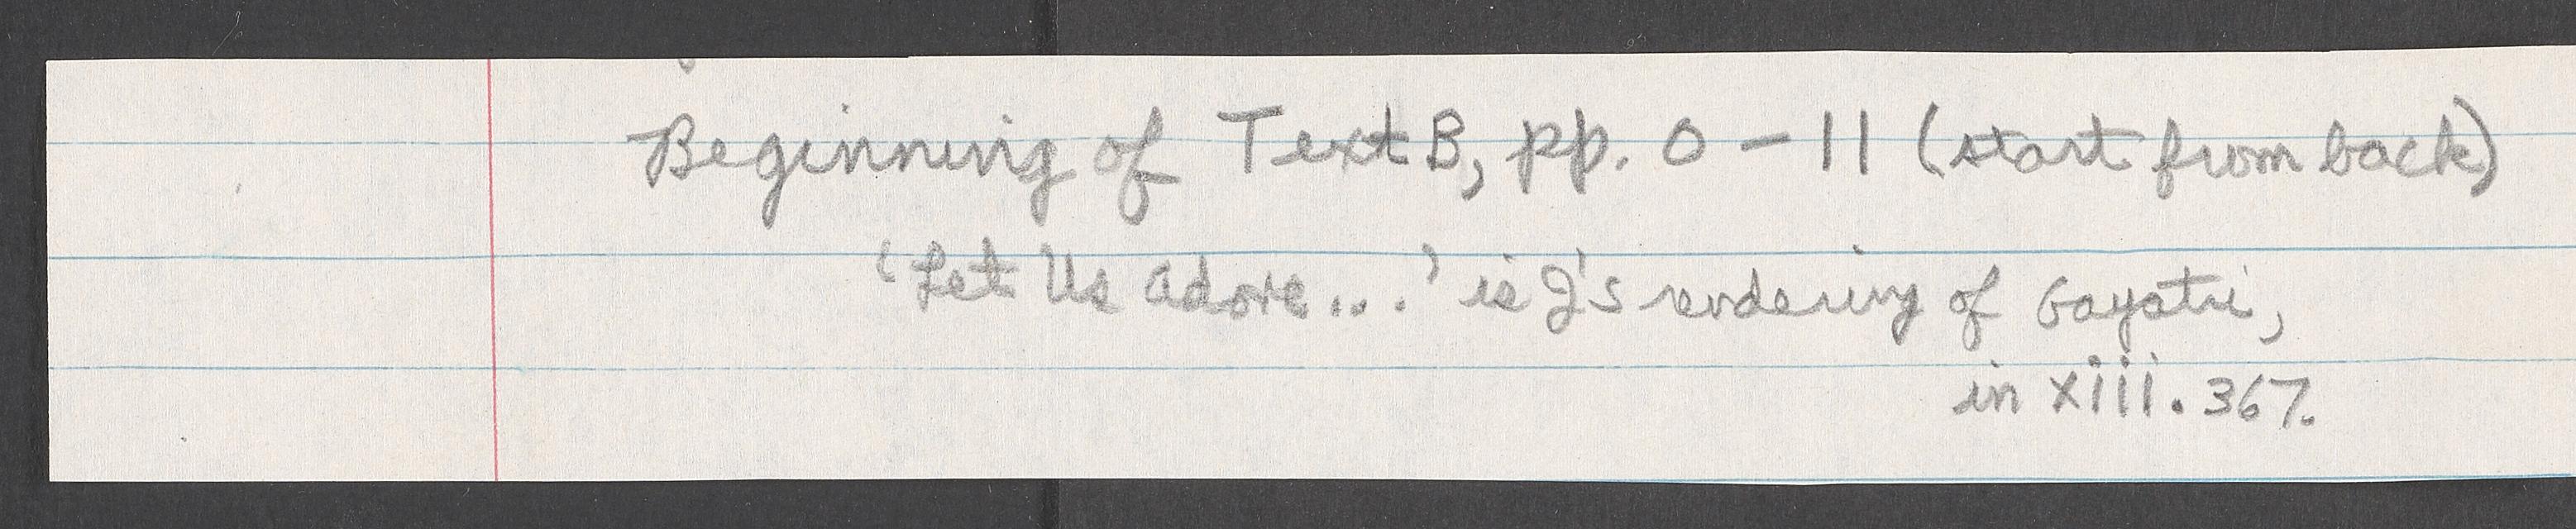 Beginning of Text B, pp. 0 – 11 (start from back)
'Let Us adore...' is J's rendering of Gayatri,
in xiii. 367.